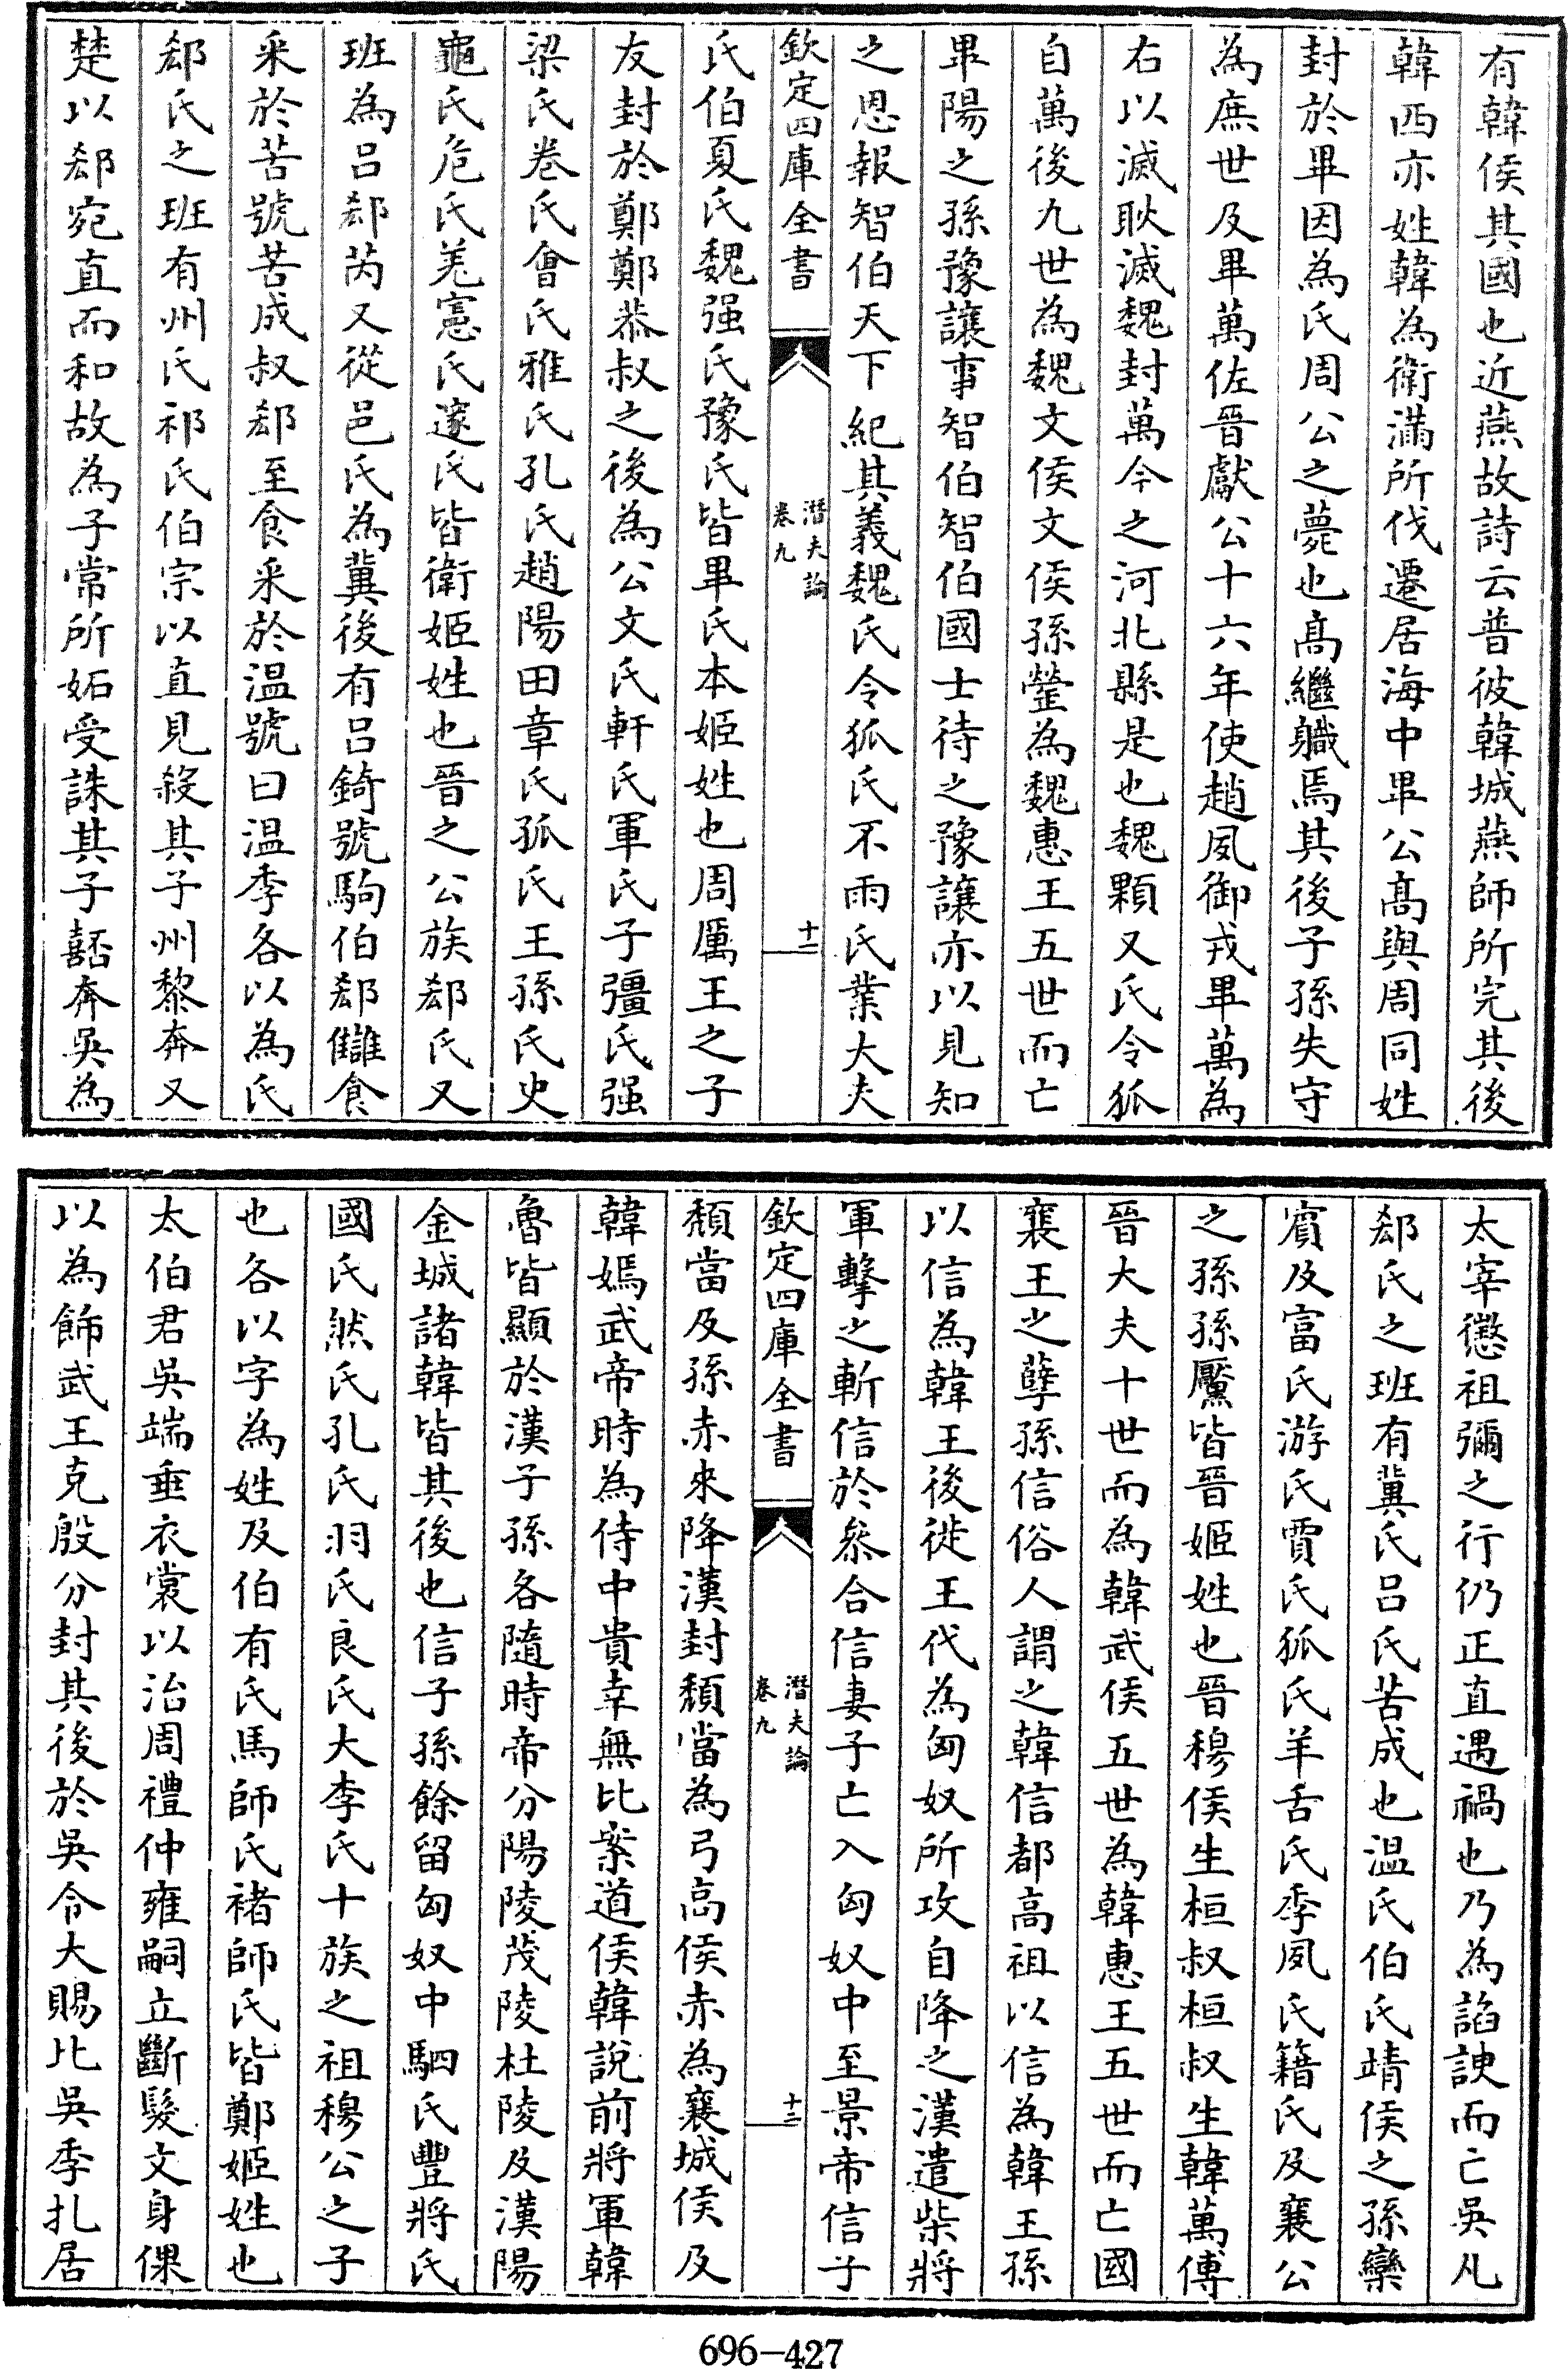 有韓侯其國也近燕故詩云普彼韓城燕師所完其後
韓西亦姓韓為衛滿所伐遷居海中畢公髙與周同姓
封於畢因為氏周公之薨也髙繼職焉其後子孫失守
為庶世及畢萬佐晉獻公十六年使趙夙御戎畢萬為
右以滅耿滅魏封萬今之河北縣是也魏顆又氏令狐
自萬後九世為魏文侯文侯孫罃為魏惠王五世而亡
畢陽之孫豫讓事智伯智伯國士待之豫讓亦以見知
之恩報智伯天下紀其義魏氏令狐氏不雨氏葉大夫
欽定四庫全書
潛夫論
卷九
十二
氏伯夏氏魏强氏豫氏皆畢氏本姬姓也周厲王之子
友封於鄭鄭恭叔之後為公文氏軒氏軍氏子彊氏强
梁氏卷氏會氏雅氏孔氏趙陽田章氏孤氏王孫氏史
龜氏危氏羌憲氏邃氏皆衛姬姓也晉之公族郄氏又
班為吕郄芮又從邑氏為冀後有吕錡號駒伯郄犨食
采於苦號苦成叔郄至食采於温號曰温季各以為氏
郄氏之班有州氏祁氏伯宗以直見殺其子州黎奔又
楚以郄宛直而和故為子常所妬受誅其子嚭奔吳為
太宰懲祖彌之行仍正直遇禍也乃為諂諛而亡吳凡
郄氏之班有冀氏吕氏苦成也温氏伯氏靖侯之孫欒
賔及富氏游氏賈氏狐氏羊舌氏季夙氏籍氏及襄公
之孫孫黶皆晉姬姓也晉穆侯生桓叔桓叔生韓萬傅
晉大夫十世而為韓武侯五世為韓惠王五世而亡國
襄王之孽孫信俗人謂之韓信都高祖以信為韓王孫
以信為韓王後徙王代為匈奴所攻自降之漢遣柴將
軍擊之斬信於叅合信妻子亡入匈奴中至景帝信子
欽定四庫全書
潛夫論
卷九
十三
頽當及孫赤來降漢封頽當為弓高侯赤為襄城侯及
韓嫣武帝時為侍中貴幸無比案道侯韓說前將軍韓
魯皆顯於漢子孫各隨時帝分陽陵茂陵杜陵及漢陽
金城諸韓皆其後也信子孫餘留匈奴中駟氏豐將氏
國氏然氏孔氏羽氏良氏大季氏十族之祖穆公之子
也各以字為姓及伯有氏馬師氏褚師氏皆鄭姬姓也
太伯君吳端垂衣裳以治周禮仲雍嗣立斷髮文身倮
以為飾武王克殷分封其後於吳令大賜比吳季札居
696-427